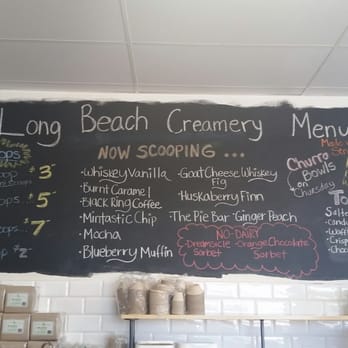 Long Beach Creamery Menu
NOW SCOOPING ...
ops $3
oop $5
oops $7
oops... $2
·Whiskey Vanilla
·Burnt Caramel
·Black Ring Coffee
·Mintastic Chip
·Mocha
·Blueberry Muffin
·Goat Cheese Whiskey
Fig
·Huskaberry Finn
·The Pie Bar ·Ginger Peach
NO-DAIRY
·Dreamsicle ·Orange Chocolate
Sorbet Sorbet
Churro
Bowls
on
Thursday
To